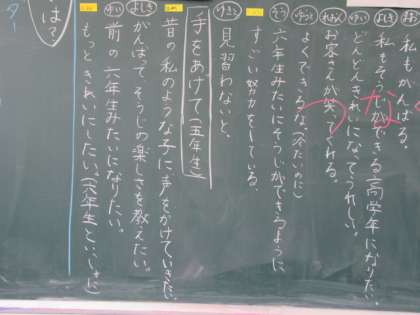 私もがんばる。
よしき 私もそうじができる高学年になりたい。
ゆい どんどんきれいになってうれしい。
お客さんが笑ってくれる。
ゆう よくできるな(冷たいのに)
そう 六年生みたいにそうじができるように
すごい努力をしている。
ゆきと 見習わないと、
手をあげて(五年生)
昔の私のような子に声をかけていきたい
よしき がんばって、そうじの楽しさを教えたい。
ゆい 前の六年生みたいになりたい。
もっときれいにしたい(六年生といっしょに)
は?